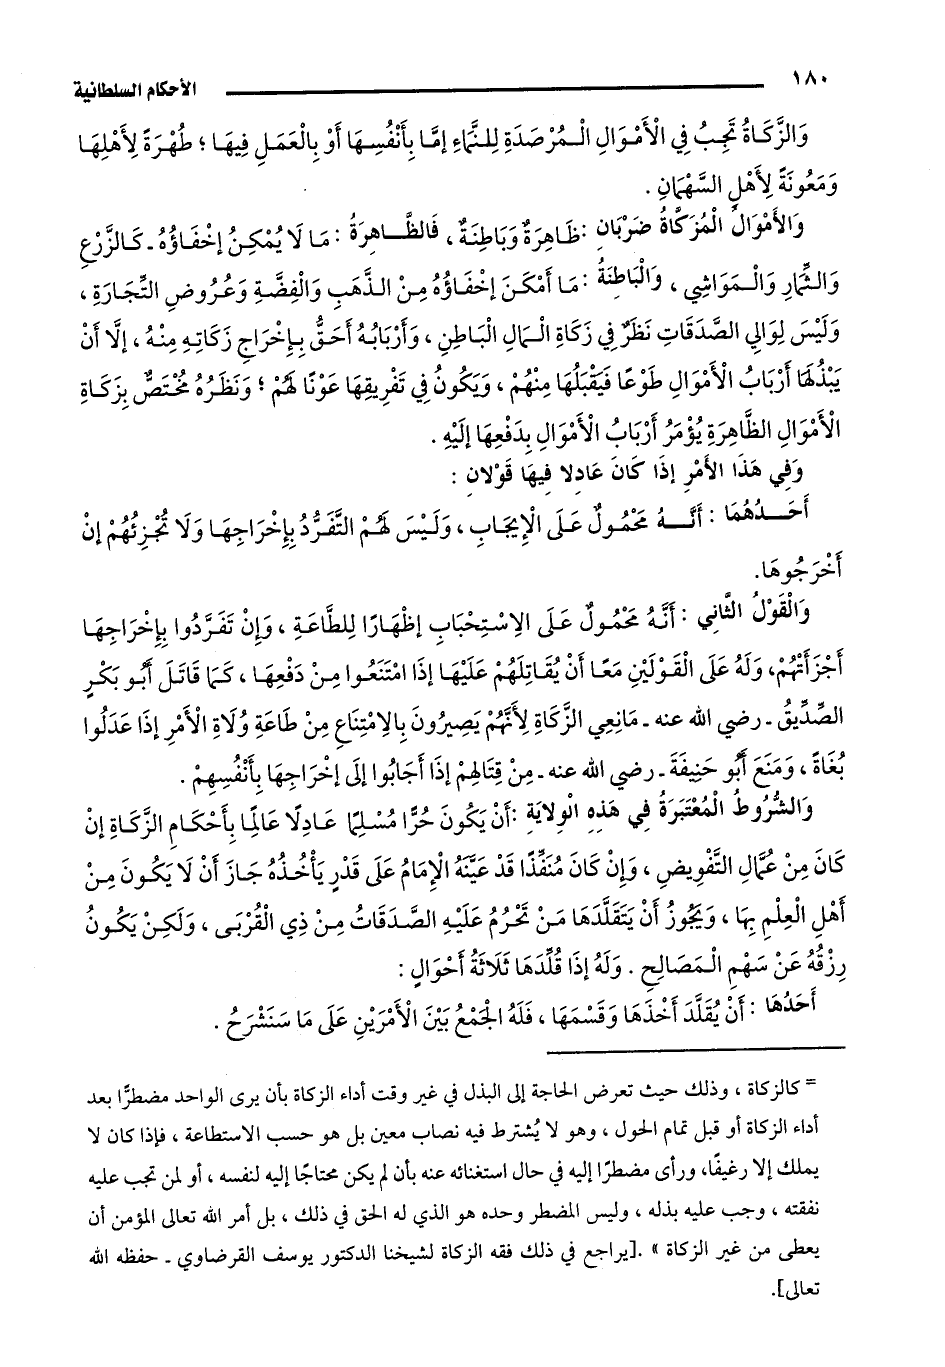 ١٨٠ الأحكام السلطانية
وَالزَّكَاةُ تَجِبُ فِي الْأَمْوَالِ الْمُرْصَدَةِ لِلنَّمَاءِ إمَّا بِأَنْفُسِهَا أَوْ بِالْعَمَلِ فِيهَا ؛ طُهْرَةً لِأَهْلِهَا
وَمَعُونَةً لِأَهْلِ السَّهْمَانِ .
وَالأَمْوَالُ الْمُزَكَّاةُ ضَرْبَانِ : ظَاهِرَةٌ وَبَاطِنَةٌ ، فَالظَّاهِرَةُ : مَا لَا يُمْكِنُ إخْفَاؤُهُ ـ كَالزَّرْعِ
وَالثِّمَارِ وَالْمَوَاشِي ، وَالْبَاطِنَةُ : مَا أَمْكَنَ إخْفَاؤُهُ مِنْ الذَّهَبِ وَالْفِضَّةِ وَعُرُوضِ التِّجَارَةِ ،
وَلَيْسَ لِوَالِي الصَّدَقَاتِ نَظَرٌ فِي زَكَاةِ الْمَالِ الْبَاطِنِ ، وَأَرْبَابُهُ أَحَقُّ بِإِخْرَاجِ زَكَاتِهِ مِنْهُ ، إلَّا أَنْ
يَبْذُلَهَا أَرْبَابُ الْأَمْوَالِ طَوْعًا فَيَقْبَلُهَا مِنْهُمْ ، وَيَكُونُ فِي تَفْرِيقِهَا عَوْنًا لَهُمْ ؛ وَنَظَرُهُ مُخْتَصٌّ بِزَكَاةِ
الْأَمْوَالِ الظَّاهِرَةِ يُؤْمَرُ أَرْبَابُ الْأَمْوَالِ بِدَفْعِهَا إلَيْهِ .
وَفِي هَذَا الأَمْرِ إذَا كَانَ عَادِلا فِيهَا قَوْلَانِ :
أَحَدُهُمَا : أَنَّهُ مَحْمُولٌ عَلَى الْإِيجَابِ ، وَلَيْسَ لَهُمْ التَّفَرُّدُ بِإِخْرَاجِهَا وَلَا تُجْزِئُهُمْ إنْ
أَخْرَجُوهَا.
وَالْقَوْلُ الثَّانِي : أَنَّهُ مَحْمُولٌ عَلَى الِاسْتِحْبَابِ إظْهَارًا لِلطَّاعَةِ ، وَإِنْ تَفَرَّدُوا بِإِخْرَاجِهَا
أَجْزَأَتْهُمْ، وَلَهُ عَلَى الْقَوْلَيْنِ مَعًا أَنْ يُقَاتِلَهُمْ عَلَيْهَا إذَا امْتَنَعُوا مِنْ دَفْعِهَا ، كَمَا قَاتَلَ أَبُو بَكْرٍ
الصِّدِّيقُ ـ رضي الله عنه ـ مَانِعِي الزَّكَاةِ لِأَنَّهُمْ يَصِيرُونَ بِالِامْتِنَاعِ مِنْ طَاعَةِ وُلَاةِ الْأَمْرِ إذَا عَدَلُوا
بُغَاةً ، وَمَنَعَ أَبُو حَنِيفَةَ ـ رضي الله عنه ـ مِنْ قِتَالِهِمْ إذَا أَجَابُوا إلَى إخْرَاجِهَا بِأَنْفُسِهِمْ .
وَالشُّرُوطُ الْمُعْتَبَرَةُ فِي هَذِهِ الْوِلَايَةِ :أَنْ يَكُونَ حُرًّا مُسْلِمًا عَادِلًا عَالِمًا بِأَحْكَامِ الزَّكَاةِ إنْ
كَانَ مِنْ عُمَّالِ التَّفْوِيضِ ، وَإِنْ كَانَ مُنَفِّذًا قَدْ عَيَّنَهُ الْإِمَامُ عَلَى قَدْرٍ يَأْخُذُهُ جَازَ أَنْ لَا يَكُونَ مِنْ
أَهْلِ الْعِلْمِ بِهَا ، وَيَجُوزُ أَنْ يَتَقَلَّدَهَا مَنْ تَحْرُمُ عَلَيْهِ الصَّدَقَاتُ مِنْ ذِي الْقُرْبَى ، وَلَكِنْ يَكُونُ
رِزْقُهُ عَنْ سَهْمِ الْمَصَالِحِ . وَلَهُ إذَا قُلِّدَهَا ثَلَاثَةُ أَحْوَالٍ :
أَحَدُهَا : أَنْ يُقَلَّدَ أَخْذَهَا وَقَسْمَهَا ، فَلَهُ الْجَمْعُ بَيْنَ الْأَمْرَيْنِ عَلَى مَا سَنَشْرَحُ .
= كالزكاة ، وذلك حيث تعرض الحاجة إلى البذل في غير وقت أداء الزكاة بأن يرى الواحد مضطرًّا بعد
أداء الزكاة أو قبل تمام الحول ، وهو لا يُشترط فيه نصاب معين بل هو حسب الاستطاعة ، فإذا كان لا
يملك إلا رغيفًا، ورأى مضطرًا إليه في حال استغنائه عنه بأن لم يكن محتاجًا إليه لنفسه ، أو لمن تجب عليه
نفقته ، وجب عليه بذله ، وليس المضطر وحده هو الذي له الحق في ذلك ، بل أمر الله تعالى المؤمن أن
يعطى من غير الزكاة » .[يراجع في ذلك فقه الزكاة لشيخنا الدكتور يوسف القرضاوي ـ حفظه الله
تعالى].